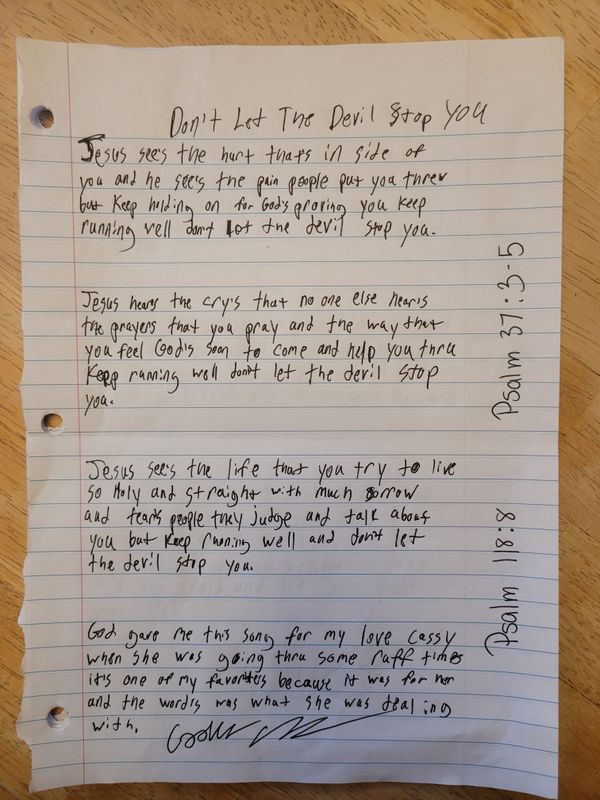 Don't Let The Devil Stop You
Jesus see's the hurt that's in side of
you and he see's the pain people put you threw
but Keep holding on for God's proving you keep
running well don't Let the devil stop you.
Jesus hears the cry's that no one else hears
the prayers that you pray and the way that
you feel God's soon to come and help you thru
Keep running well don't let the devil stop
you.
Jesus see's the life that you try to live
so Holy and straight with much sorrow
and tears people they judge and talk about
you but keep running well and don't let
the devil stop you.
God gave me this song for my love Cassy
when she was going thru some ruff times
it's one of my favorites because it was for her
and the words was what she was dealing
with.
Psalm 37:3-5
Psalm 118:8